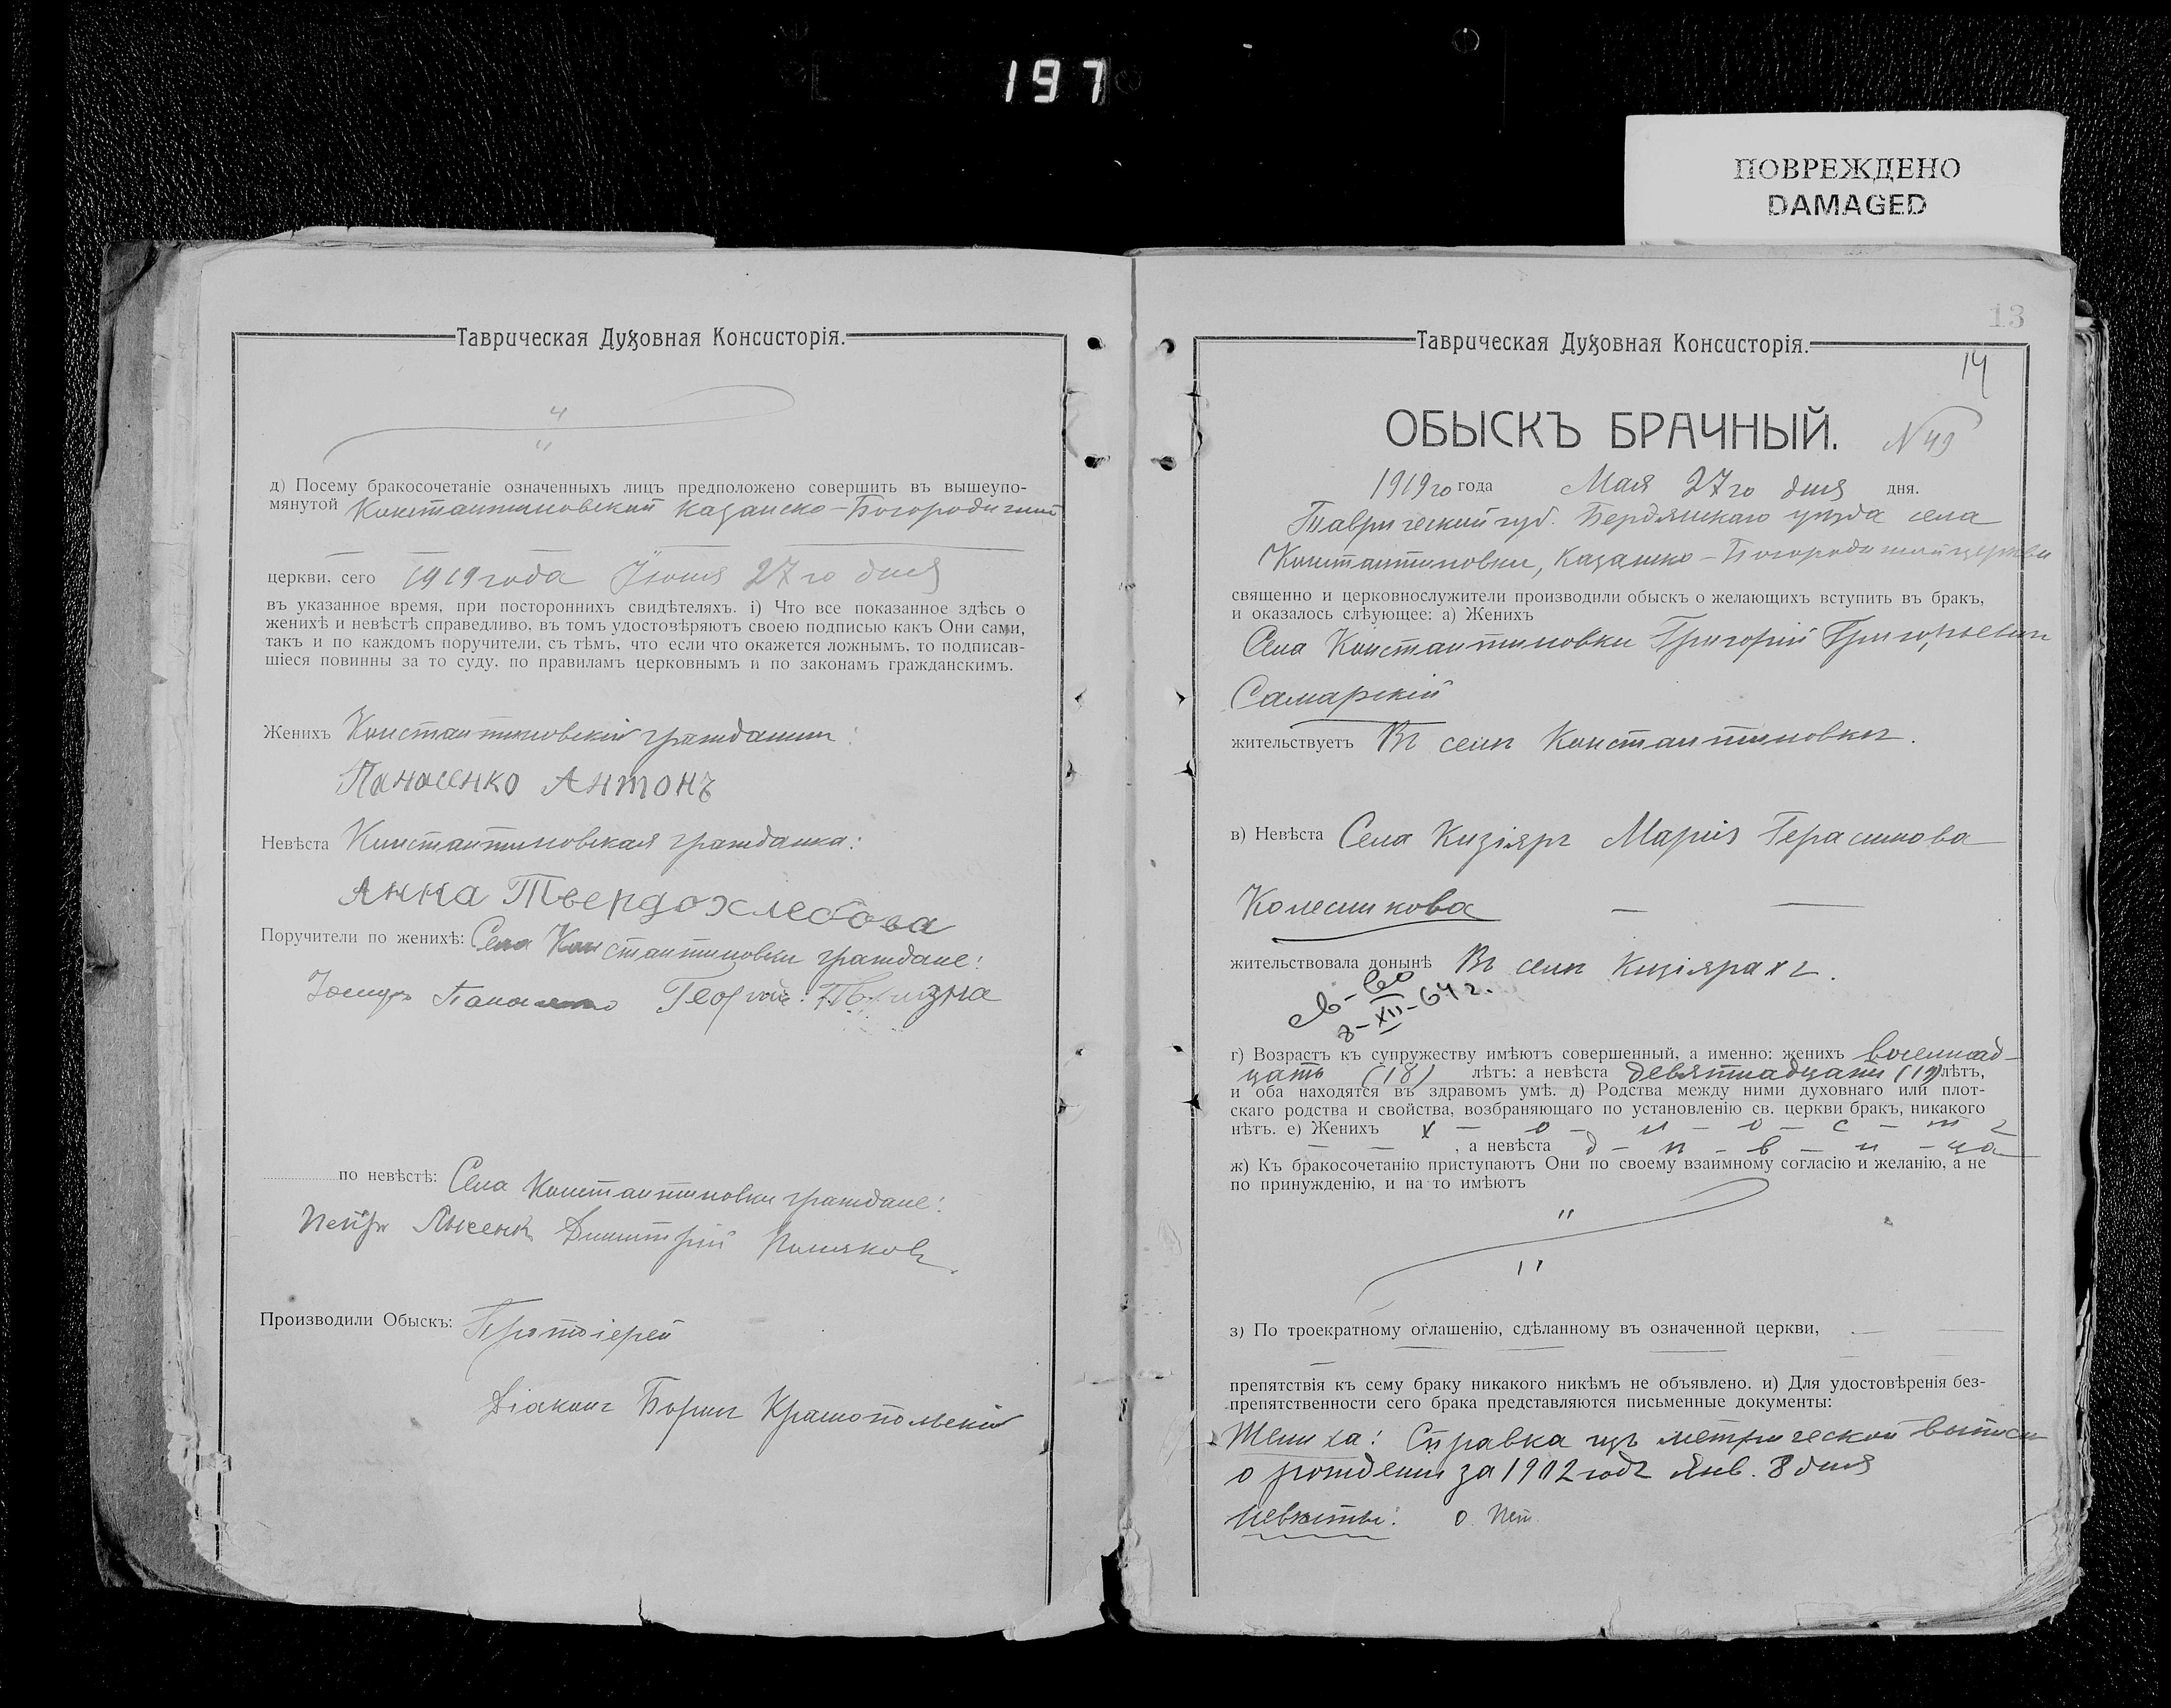 197
ПОВРЕЖДЕНО
DAMAGED
Таврическая Духовная Консисторія.
д) Посему бракосочетаніе означенныхъ лицъ предположено совершить въ вышеупо-
мянутой Константиновской Казанско-Богородичной
церкви. сего 1919 года Іюня 27го дня
въ указанное время, при постороннихъ свидѣтеляхъ. і) Что все показанное здѣсь о
женихѣ и невѣстѣ справедливо, въ томъ удостовѣряютъ своею подписью какъ Они сами,
такъ и по каждомъ поручители, съ тѣмъ, что если что окажется ложнымъ, то подписав-
шіеся повинны за то суду, по правиламъ церковнымъ и по законамъ гражданскимъ.
Женихъ Константиновскій гражданин:
Панасенко Антонъ
Невѣста Константиновская гражданка:
Анна Твердохлебова
Поручители по женихѣ: Села Константиновки граждане:
Георгій
по невѣстѣ: Села Константиновки граждане:
Петръ Лысенк Димитрій Поляковъ
Производили Обыскъ: Протоіерей
Діаконъ Борисъ Краснопольскій
Таврическая Духовная Консисторія.
13
14
ОБЫСКЪ БРАЧНЫЙ. № 49
1919го года Мая 27го дня дня.
Таврической губ. Бердянскаго уѣзда села
Константиновки, Казанско-Богородичной церкви
священно и церковнослужители производили обыскъ о желающихъ вступить въ бракъ,
и оказалось слѣующее: а) Женихъ
Села Константиновки Григорій Григорьевич
Самарскій
жительствуетъ Въ селѣ Константиновкѣ.
в) Невѣста Села Кизіяръ Марія Герасимова
Колесникова
жительствовала донынѣ Въ селѣ Кизіярахъ.
св-во
8-XII-64 г.
г) Возрастъ къ супружеству имѣютъ совершенный, а именно: женихъ восемнад-
цать (18) лѣтъ: а невѣста девятнадцати (19) лѣтъ,
и оба находятся въ здравомъ умѣ. д) Родства между ними духовнаго или плот-
скаго родства и свойства, возбраняющаго по установленію св. церкви бракъ, никакого
нѣтъ. е) Женихъ х - о - л - о - с - т ъ
, а невѣста д - ѣ - в - и - ца
ж) Къ бракосочетанію приступаютъ Они по своему взаимному согласію и желанію, а не
по принужденію, и на то имѣютъ
з) По троекратному оглашенію, сдѣланному въ означенной церкви,
препятствія къ сему браку никакого никѣмъ не объявлено. и) Для удостовѣренія без-
препятственности сего брака представляются письменные документы:
Жениха: Справка изъ метрической выписи
о рожденіи за 1902 годъ Янв. 8 дня
Невѣсты: